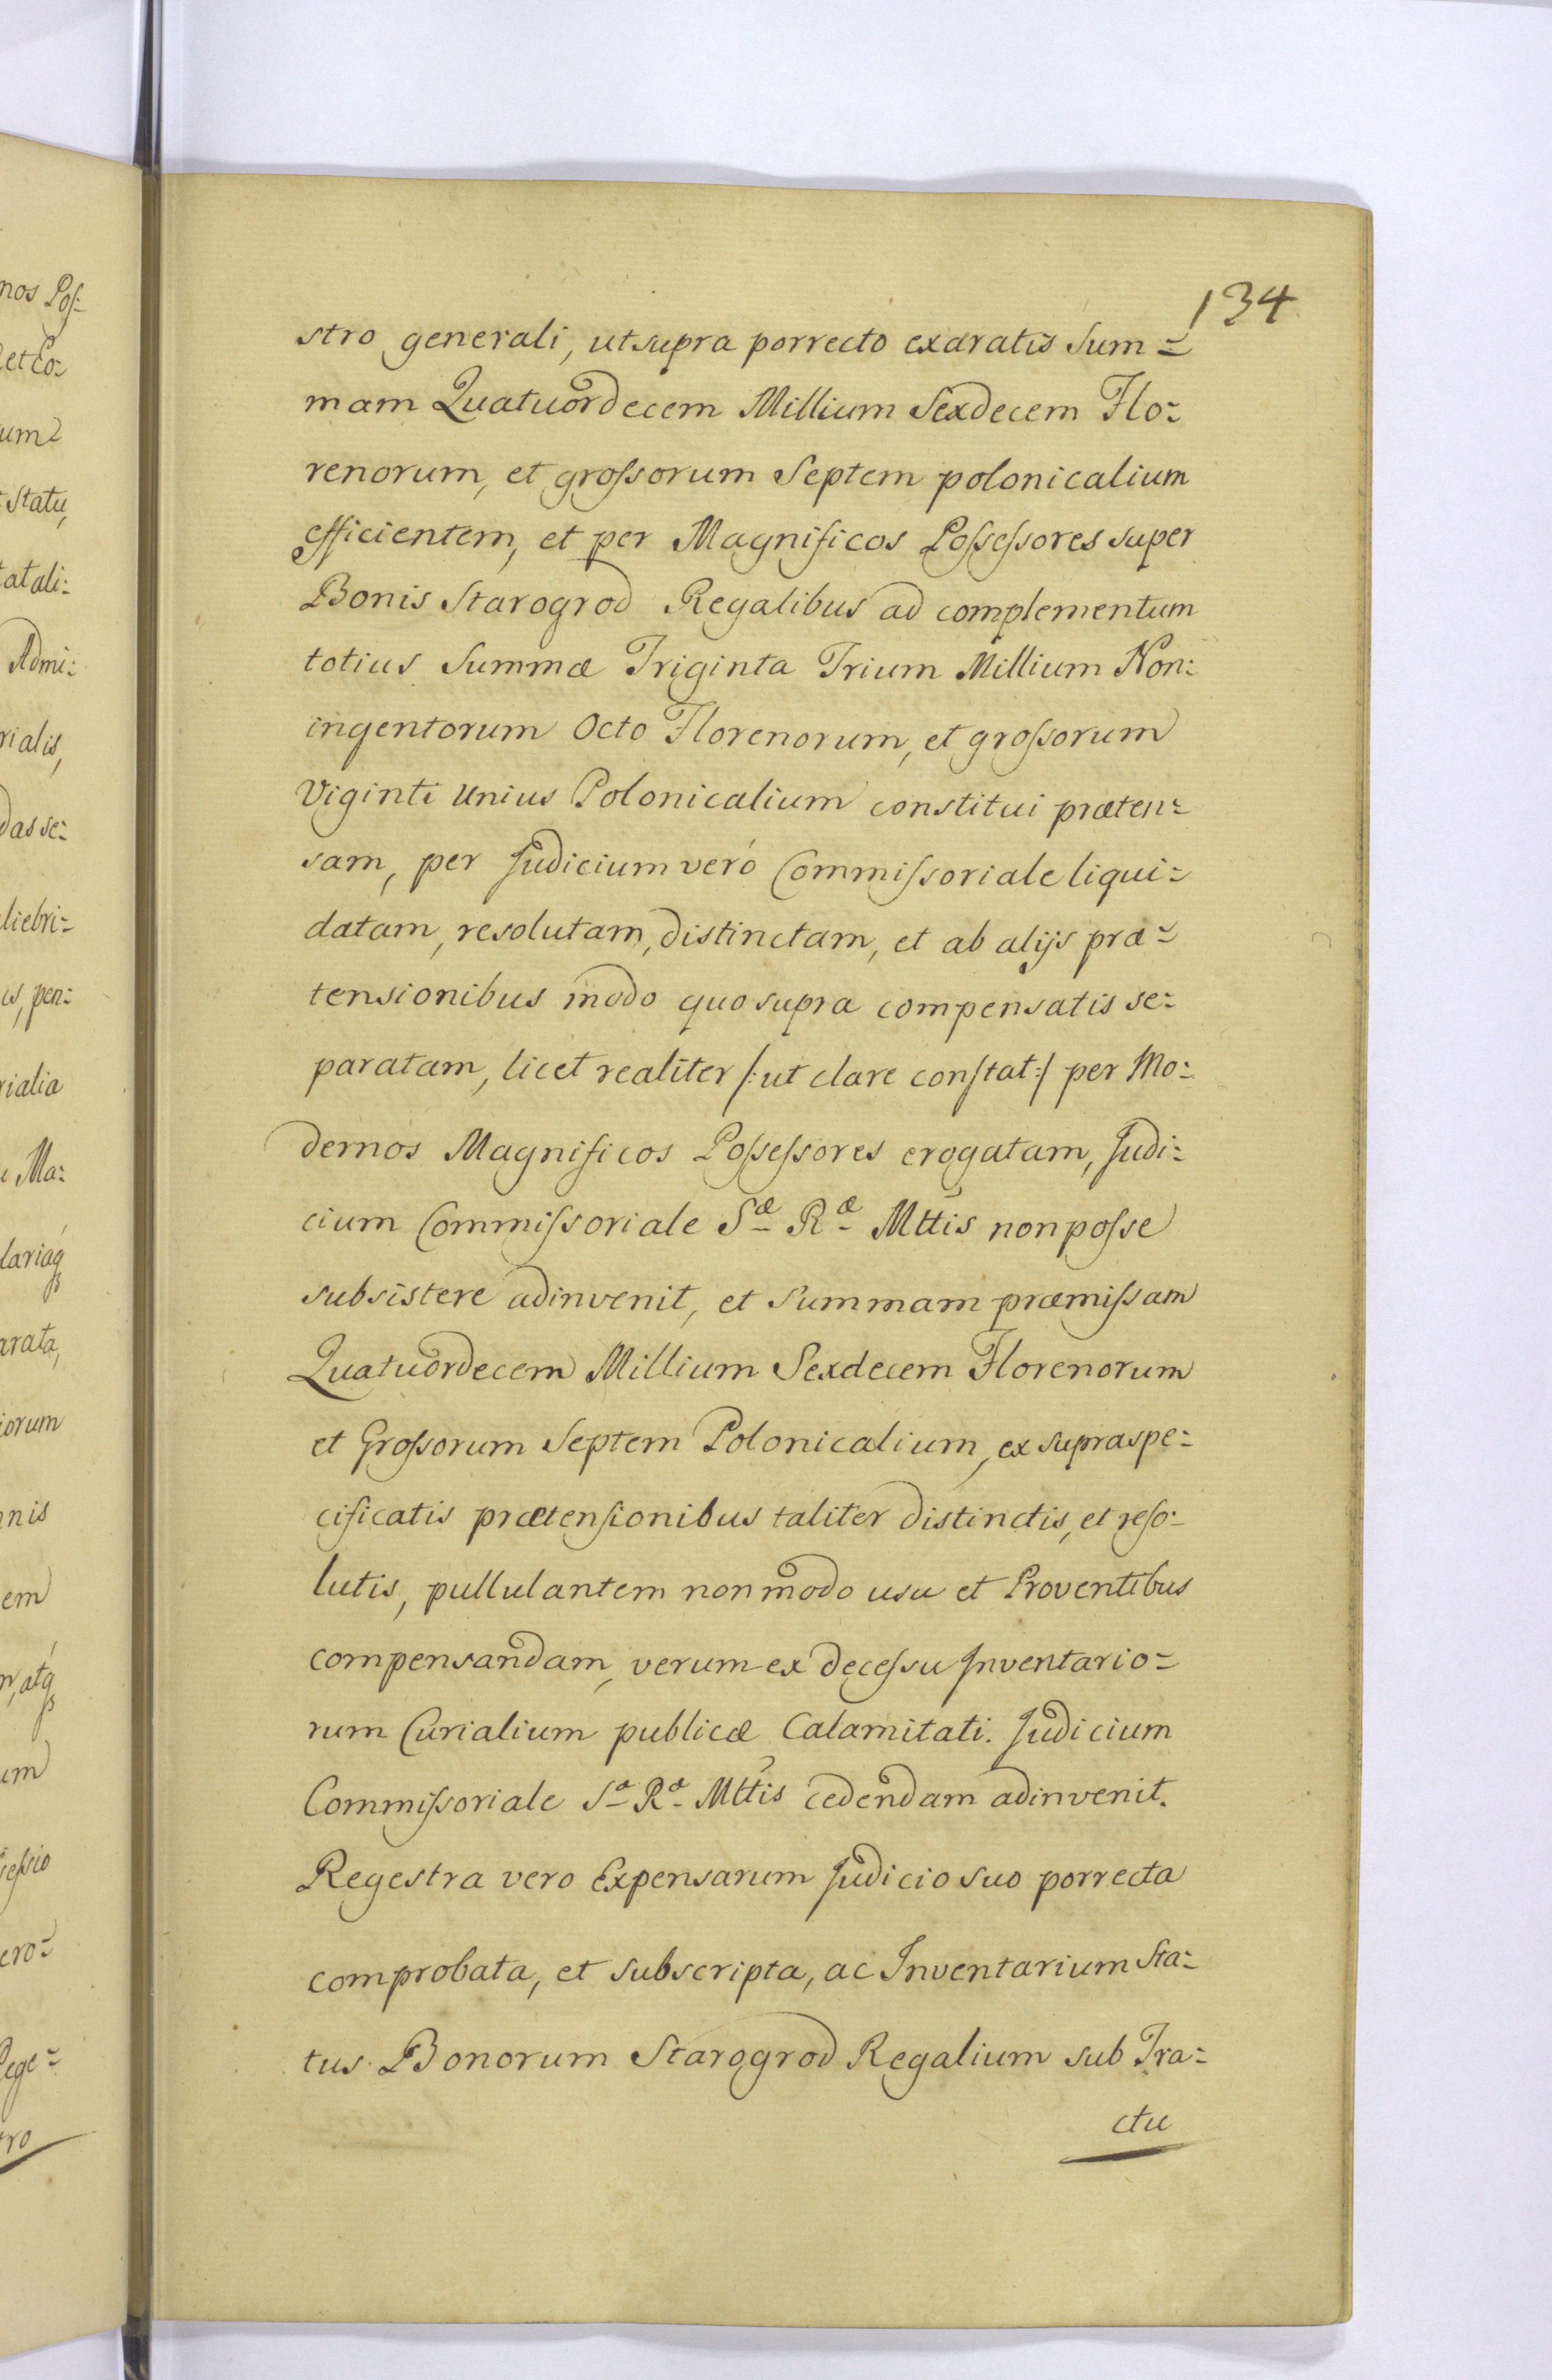 134
stro generali, ut supra porrecto exaratis Sum=
mam Quatuordecem Millium Sexdecem Flo=
renorum, et grossorum Septem polonicalium
efficientem, et per Magnificos Possessores super
Bonis Starogrod Regalibus ad complementum
totius Summæ Triginta Trium Millium Non=
ingentorum Octo Florenorum, et grossorum
Viginti Unius Polonicalium constitui præten=
sam, per Judicium veró Commissoriale liqui=
datam, resolutam, distinctam, et ab alijs præ=
tensionibus modo quo supra compensatis se=
paratam, licet realiter /: ut clare constat :/ per Mo=
dernos Magnificos Possessores erogatam, Judi=
cium Commissoriale Sæ Ræ Mttis non posse
subsistere adinvenit, et Summam præmissam
Quatuordecem Millium Sexdecem Florenorum
et Grossorum Septem Polonicalium, ex supraspe=
cificatis prætensionibus taliter distinctis, et reso=
lutis, pullulantem non modo usu et Proventibus
compensandam, verum ex decessu Inventario=
rum Curialium publicæ Calamitati. Judicium
Commissoriale Sæ Ræ Mttis cedendam adinvenit.
Regestra vero Expensarum Judicio suo porrecta
comprobata, et subscripta, ac Inventarium Sta=
tus Bonorum Starogrod Regalium sub Tra=
ctu